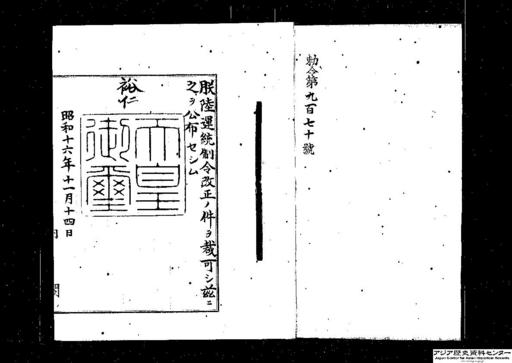 勅令第九百七十號
朕陸運統制令改正ノ件ヲ裁可シ茲ニ
之ヲ公布セシム
裕仁
天皇
御璽
昭和十六年十一月十四日
アジア歴史資料センター
Japan Center for Asian Historical Records